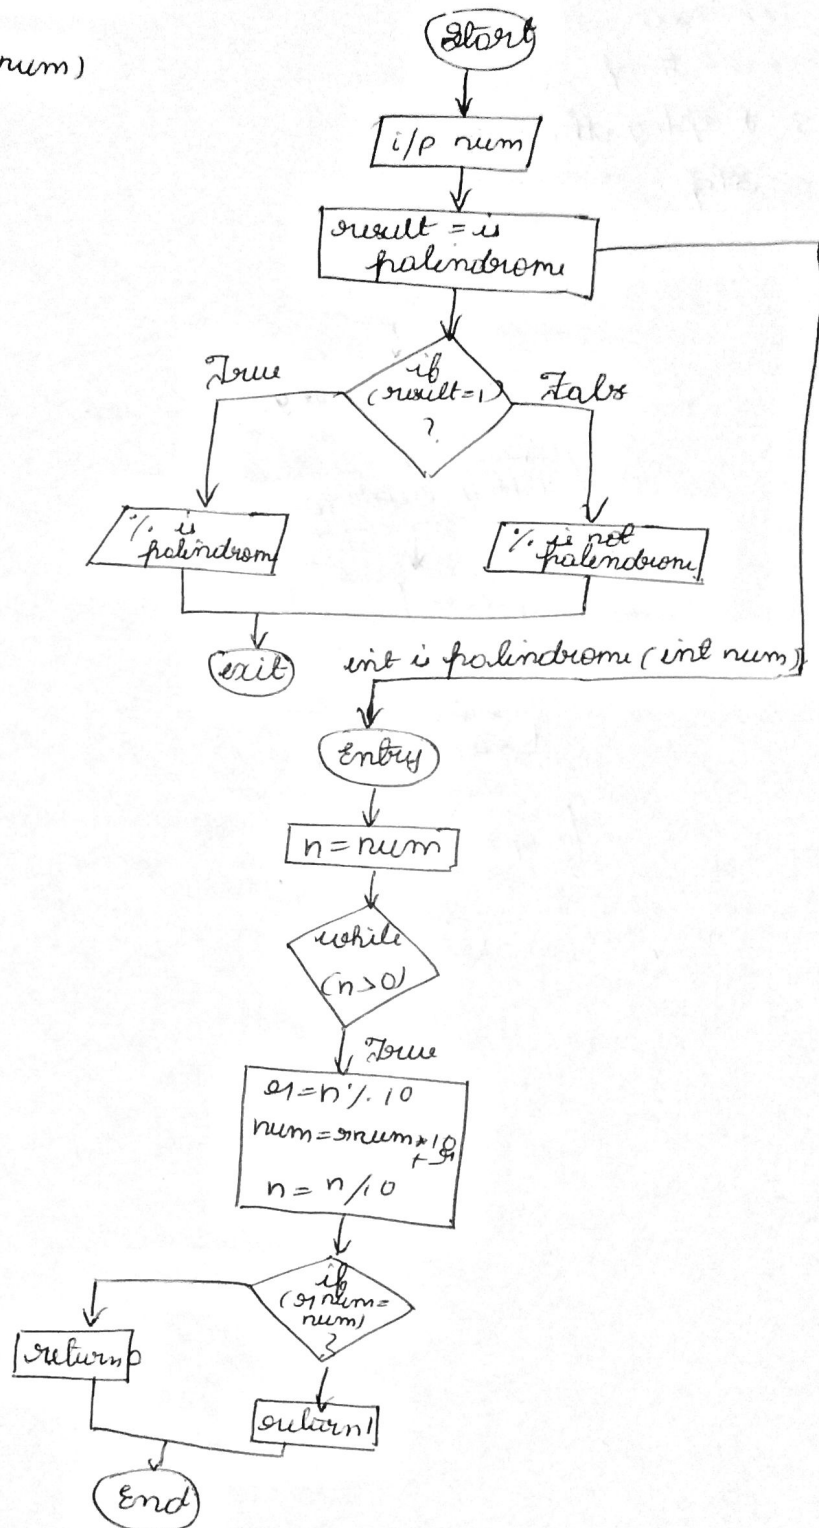 num)
Start
i/p num
result = is
palindrome
True
if
(result=1)
?
False
% is
palindrom
% is not
palindrome
exit
int is palindrome (int num)
Entry
n = num
while
(n>0)
True
r=n%10
num=rnum*10
+r
n = n/10
if
(rnum=
num)
?
return0
return1
End